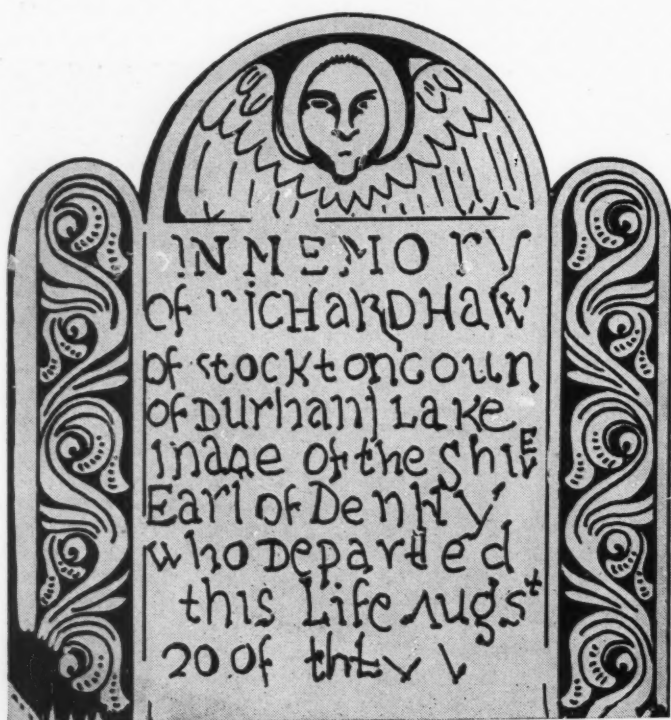 IN MEMORY
of richard Haw
of stockton coun
of Durham Lake
in age of the Ship
Earl of Denby
who Departed
this Life Augst
20 of the